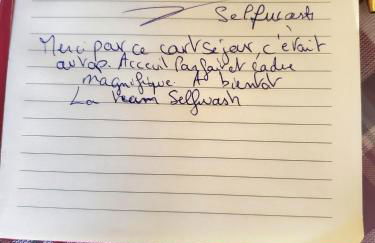 Selfwash
Merci par ce cart séjour, c'était
au top. Acceuil Parfait et cadre
magnifique. A bientot
La team Selfwash